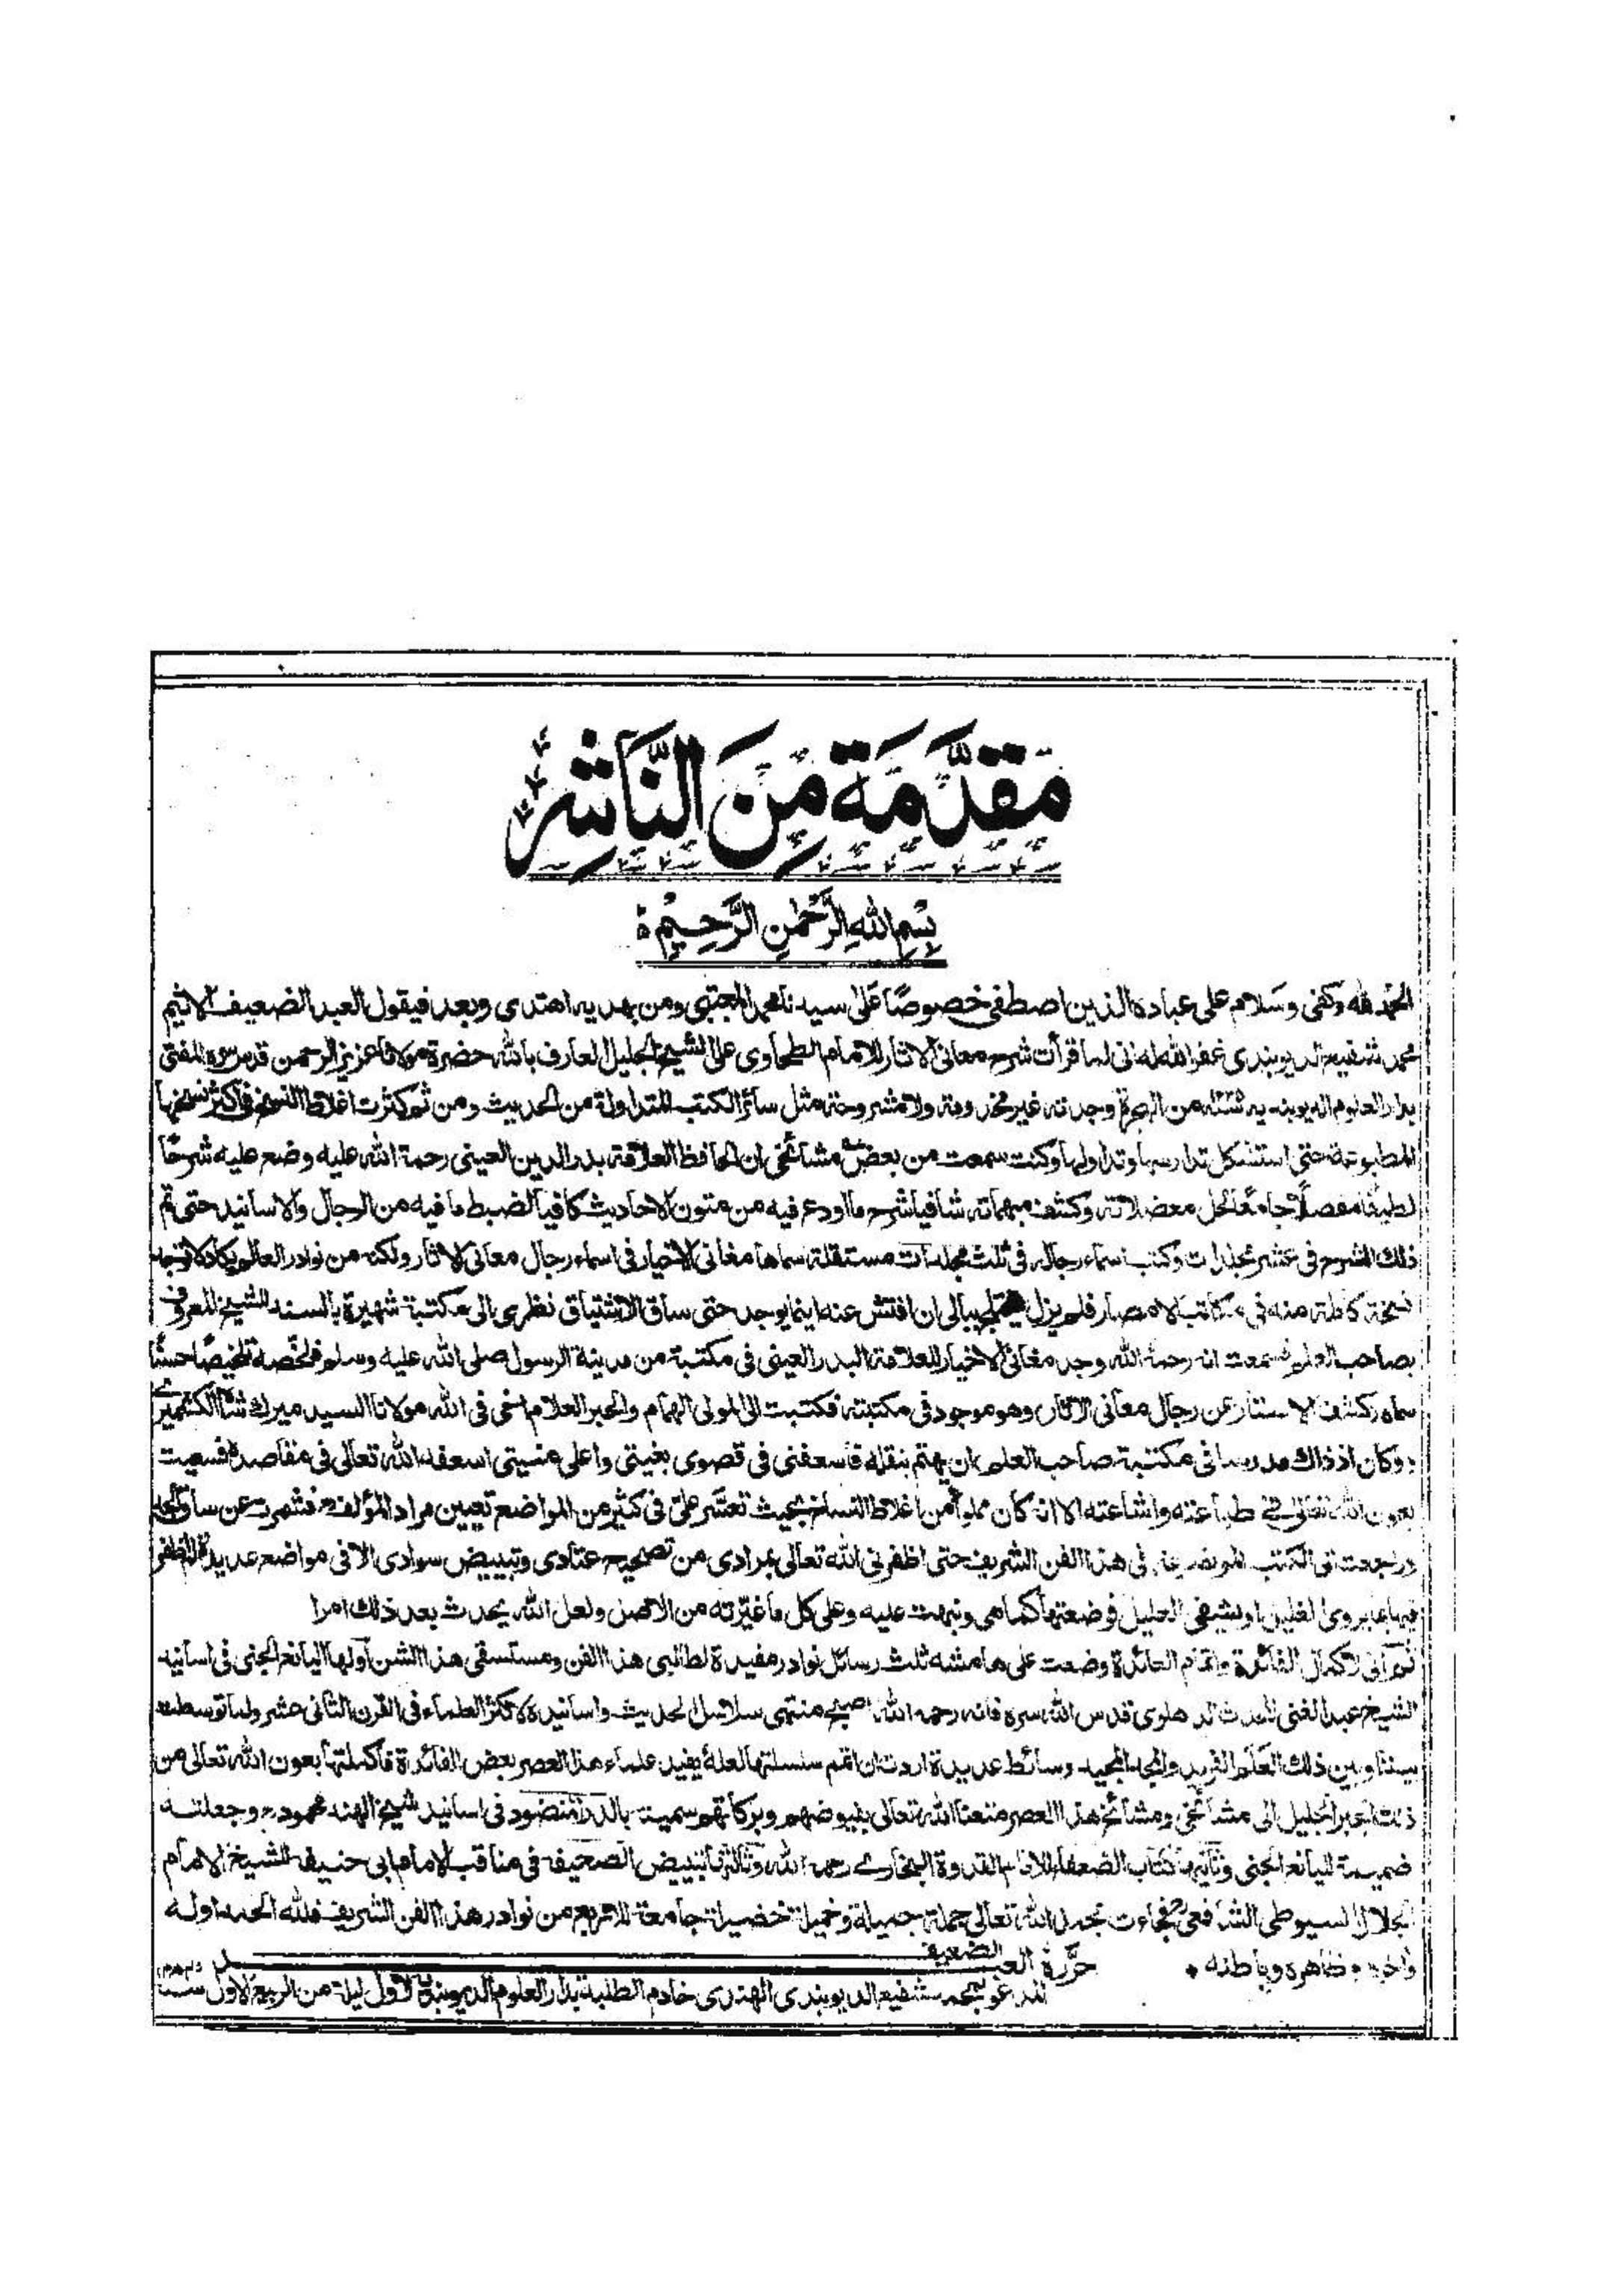 مُقَدَّمَة مِنَ النَّاشِر
بِسْمِ اللهِ الرَّحْمٰنِ الرَّحِيْمِ ۃ
الحمد لله وكفى وسلام على عباده الذين اصطفى خصوصًا على سيدنا محمد المجتبى ومن بهديه اهتدى وبعد فيقول العبد الضعيف الاثيم
محمد شفيع الديوبندى غفر الله له انى لما قرأت شرح معانى الاثار للامام الطحاوى على الشيخ الجليل العارف بالله حضرة مولانا عزيز الرحمن قدس سره المفتى
بدار العلوم الديوبندية من الهجرة وجدته غير مخدومة ولا مشروحة مثل سائر الكتب المتداولة من الحديث ومن ثم كثرت اغلاط النسخ فى اكثر نسخها
المطبوعة حتى استشكل تدارسها وتداولها وكنت سمعت من بعض مشائخى ان الحافظ العلامة بدر الدين العينى رحمة الله عليه وضع عليه شرحًا
لطيفا مفصلاً جامعًا لحل معضلاته وكشف مبهماته شافيا شرح ما اودع فيه من متون الاحاديث كافيا لضبط ما فيه من الرجال والاسانيد حتى تم
ذلك الشرح فى عشر مجلدات وكتب اسماء رجاله فى ثلث مجلدات مستقلة سماها مغانى الاخيار فى اسماء رجال معانى الاثار ولكنه من نوادر العالم يكاد لا توجد
نسخة كاملة منه فى مكاتب الامصار فلم يزل ببالى ان افتش عنه اينما يوجد حتى ساق الاشتياق نظرى الى مكتبة شهيرة بالسند للشيخ المعروف
بصاحب العلم سمعت انه رحمه الله وجد مغانى الاخيار للعلامة البدر العينى فى مكتبة من مدينة الرسول صلى الله عليه وسلم فلخصه تلخيصًا حسنًا
سماه كشف الاستار عن رجال معانى الاثار وهو موجود فى مكتبته فكتبت الى المولى الهمام والحبر العلام اخى فى الله مولانا السيد ميرك شاه الكشميرى
وكان اذ ذاك مدرسا فى مكتبة صاحب العلم ان يهتم بنقله فاسعفنى فى قصوى بغيتى واعلى منيتى اسعفه الله تعالى فى مقاصده فسعيت
بعون الله تعالى فى طباعته واشاعته الا انه كان مملوأ من اغلاط النساخ بحيث تعسر على فى كثير من المواضع تعيين مراد المؤلف فشمرت عن ساق
وراجعت الى الكتب الموضوعة فى هذا الفن الشريف حتى اظفرنى الله تعالى بمرادى من تصحيح عتادى وتبييض سوادى الا فى مواضع عديدة لم اظفر
فيها بما يروى الغليل او يشفى العليل فوضعتها كما هى ونبهت عليه وعلى كل ما غيرته من الاصل ولعل الله يحدث بعد ذلك امرا
ثم انى لاكمال الفائدة واتمام العائدة وضعت على هامشه ثلث رسائل نوادر مفيدة لطالبى هذا الفن ومستسقى هذا الشن اولها اليانع الجنى فى اسانيد
الشيخ عبد الغنى المحدث الدهلوى قدس الله سره فانه رحمه الله اصبح منتهى سلاسل الحديث واسانيده لاكثر العلماء فى القرن الثانى عشر ولما توسطت
بيننا وبين ذلك العلم الفريد والمجد المجيد وسائط عديدة اردت ان اتمم سلسلتها لعله يفيد علماء هذا العصر بعض الفائدة فاكملتها بعون الله تعالى من
ذلك الحبر الجليل الى مشائخى ومشائخ هذا العصر متعنا الله تعالى بفيوضهم وبركاتهم سميته بالدر المنضود فى اسانيد شيخ الهند محمود وجعلتـه
ضميمة لليانع الجنى وثانيها كتاب الضعفاء للامام القدوة البخارى رحمه الله وثالثها تبييض الصحيفة فى مناقب الامام ابى حنيفة للشيخ الامام
الجلال السيوطى الشافعى فجاءت بحمد الله تعالى جملة جميلة وخميلة خضيرة جامعة للاربع من نوادر هذا الفن الشريف فلله الحمد اوله
واخره وظاهره وباطنه ٭ حرّره العبد الضعيف
محمد شفيع الديوبندى الهندى خادم الطلبة بدار العلوم الديوبندية لاول ليلة من الربيع الاول